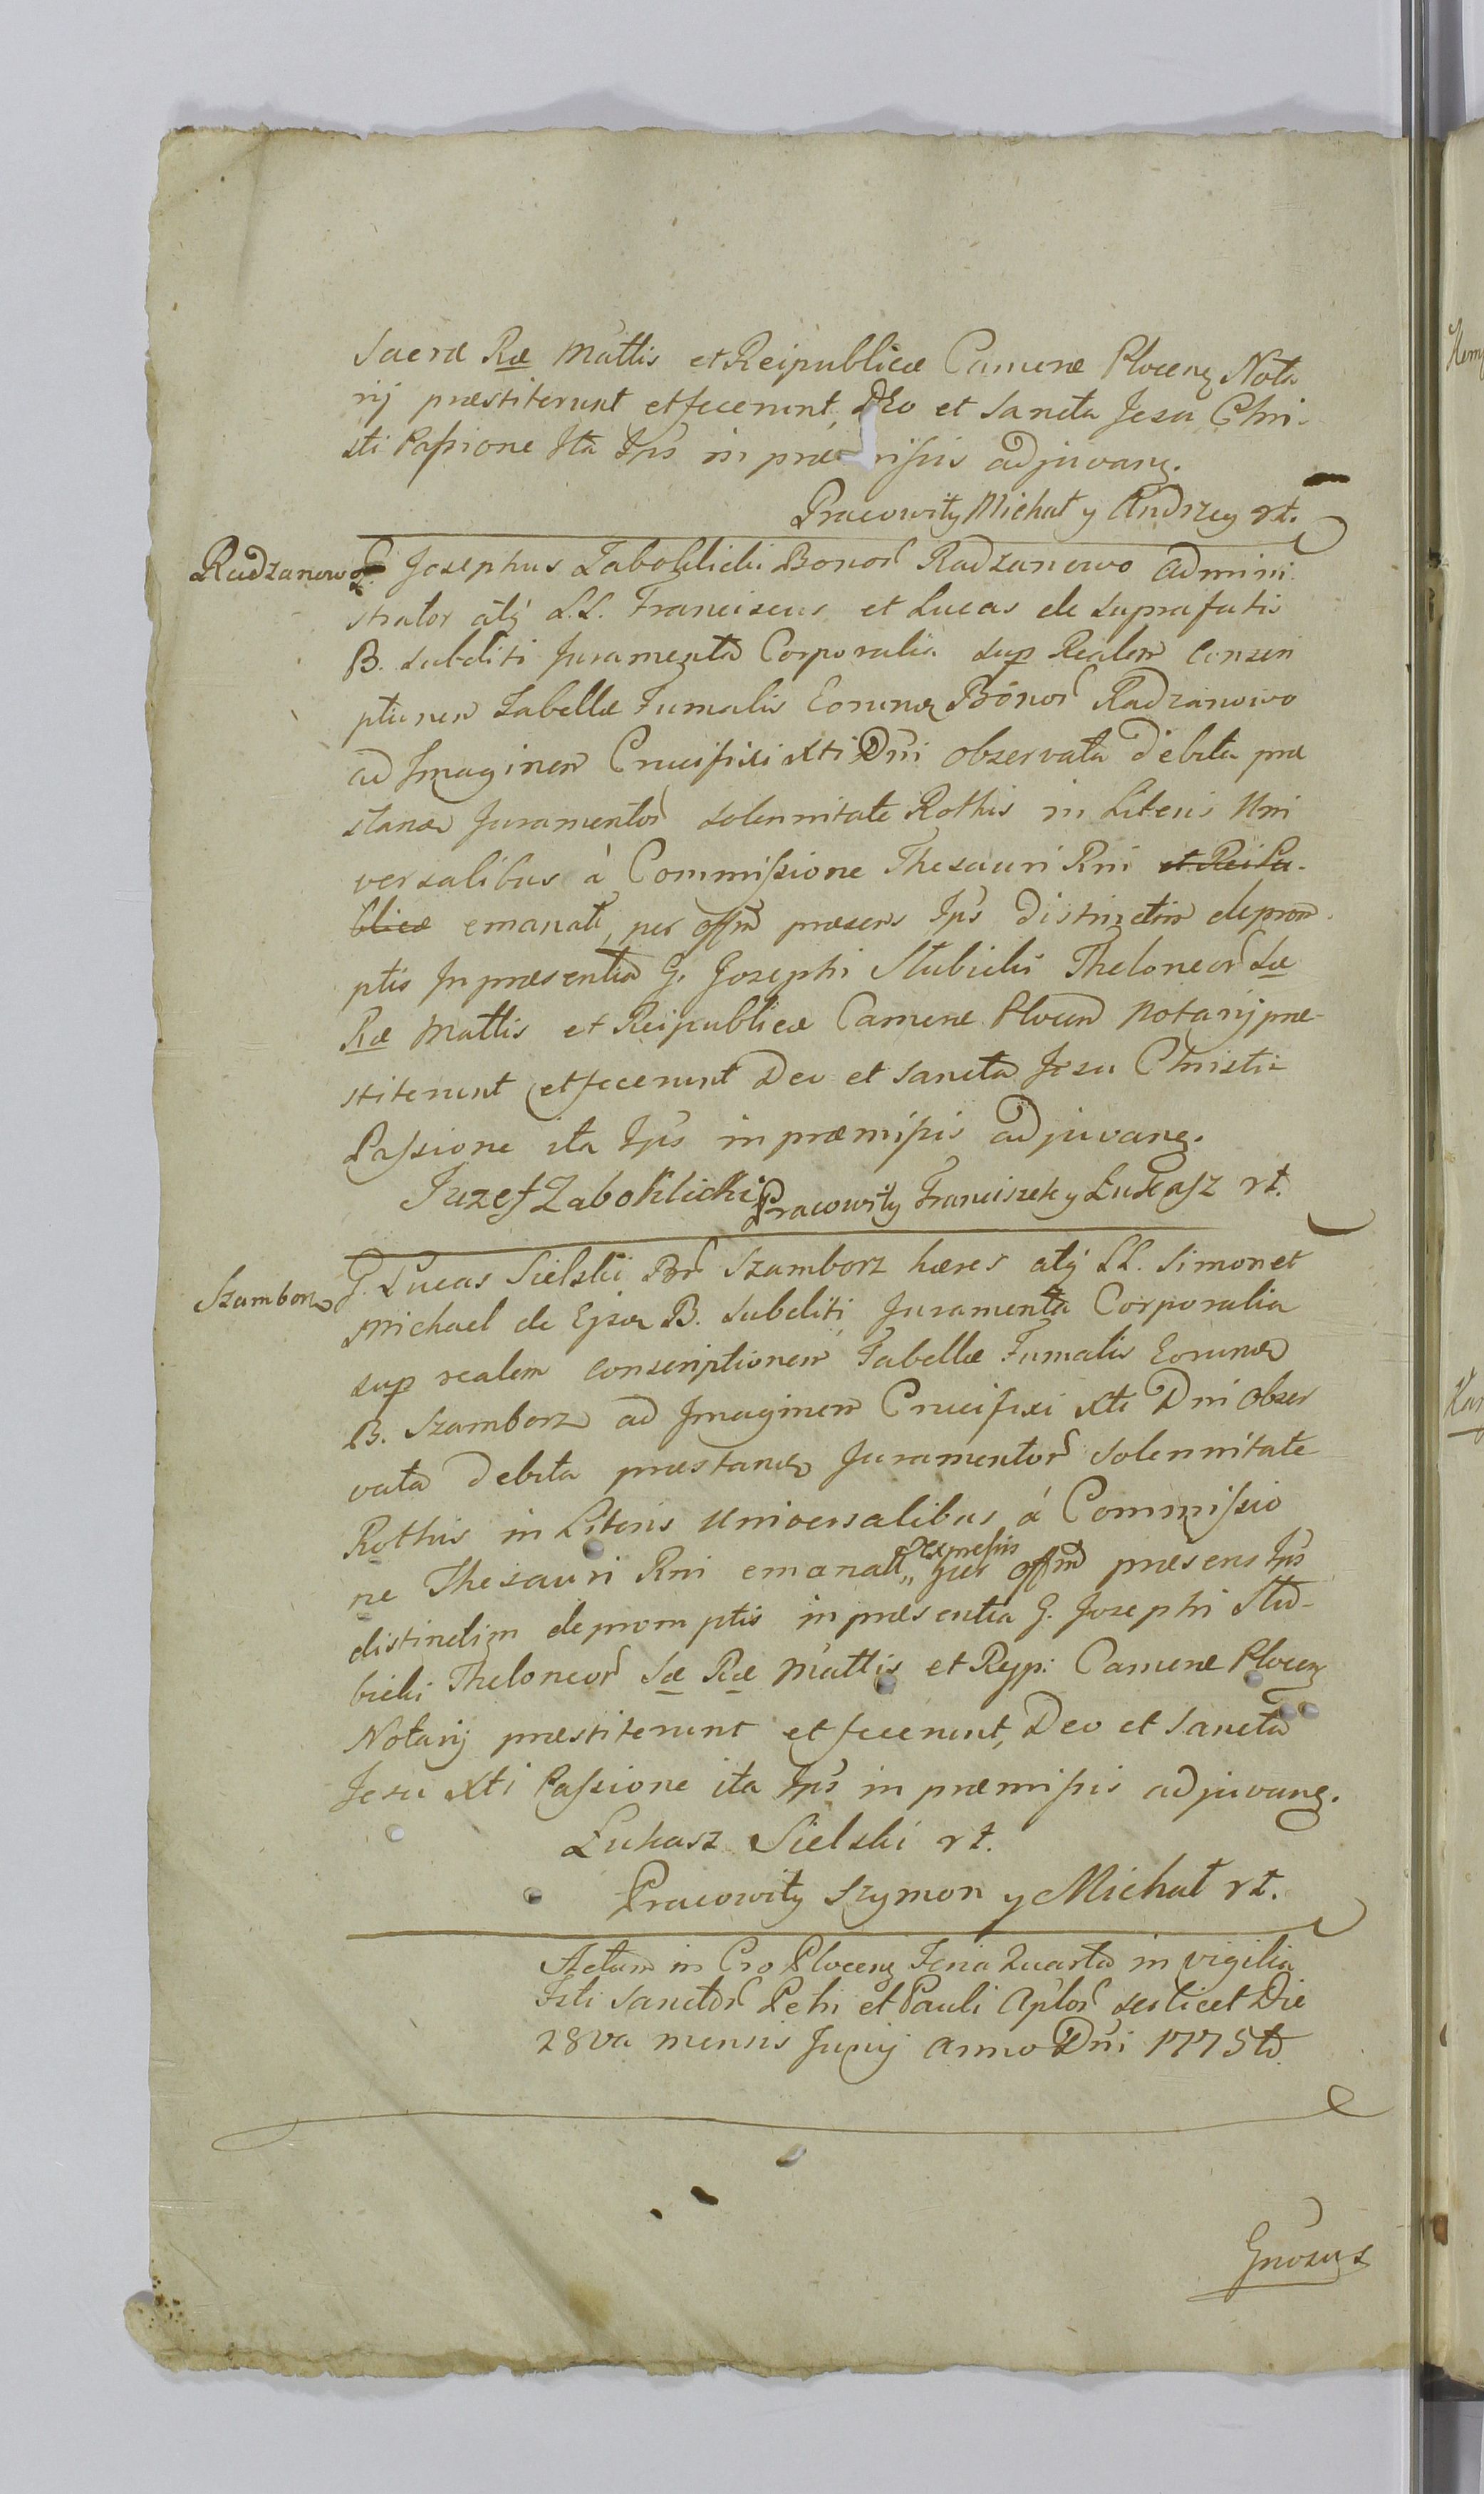 Sacræ Ræ Mattis et Reipublicæ Cameræ Plocenz Nota
rij præstiterunt et fecerunt, DEo et Sancta Jesu Chri-
sti Passione Ita Ips in præmissis adjuvanz.
Pracowity Michał y Andrzey rt.
Radzanowo
G. Josephus Zaboklicki Bonor Radzanowo admini
strator atq LL. Franciscus et Lucas de suprafatis
B. subditi Juramenta Corporalia sup Realem Conscri
ptionem Tabellæ Fumalis Eorumdz Bonor Radzanowo
ad Imaginem Crucifixi Xti Dni observata debita præ
standz Juramentor solennitate Rothis in Literis Uni
versalibus à Commissione Thesauri Rni et Reipu-
blicæ emanatt, per offm præsens Ips distinctim deprom
ptis In præsentia G. Josephi Stubicki Theloneor Sæ
Ræ Mattis et Reipublicæ Cameræ Plocen Notarij præ-
stiterunt et fecerunt Deo et Sancta Jesu Christi
Passione ita Ips in præmissis adjuvanz.
Juzef Zaboklicki Pracowity Franciszek y Łukasz rt.
Szamborz
G. Lucas Sielski Br Szamborz hæres atq LL. Simon et
Michael de Ejsdz B. subditi Juramenta Corporalia
sup realem conscriptionem Tabellæ Fumalis Eorumdz
B. Szamborz ad Imaginem Crucifixi Xti Dni obser
vata debita præstandz Juramentor solennitate
Rothis in Literis Universalibus à Commissio
ne Thesauri Rni emanatt, expressis per offm præsens Ips
distinctim depromptis in præsentia G. Josephi Stu-
bicki Theloneor Sæ Ræ Mattis et Reyp: Cameræ Plocenz
Notarij præstiterunt et fecerunt, Deo et Sancta
Jesu Xti Passione ita Ips in præmissis adjuvanz.
Łukasz Sielski rt.
Pracowity Szymon y Michał rt.
Actum in Cro Plocenz Feria Quarta in vigilia
Fsti Sanctor Petri et Pauli Aplor scilicet Die
28va mensis Junij Anno Dni 1775to